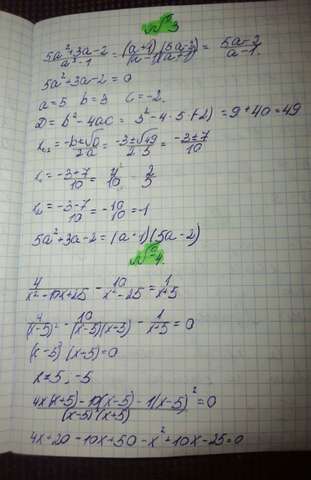 №3
5a²+3a-2/a²-1 = (a+1)(5a-2)/(a-1)(a+1) = 5a-2/a-1.
5a²+3a-2=0
a=5 b=3 c=-2.
D=b²-4ac= 3²-4·5·(-2) =9+40=49
x₁,₂=-b±√D/2a=-3±√49/2·5=-3±7/10
x₁=-3+7/10=4/10=2/5
x₂=-3-7/10=-10/10=-1
5a²+3a-2=(a+1)(5a-2)
№4.
4/x²-10x+25 - 10/x²-25=1/x+5
4/(x-5)² - 10/(x-5)(x+5) - 1/x+5=0
(x-5)²(x+5)=0
x≠5, -5
4x(x+5)-10(x-5)-1(x-5)²/(x-5)²(x+5)=0
4x+20-10x+50-x²+10x-25=0